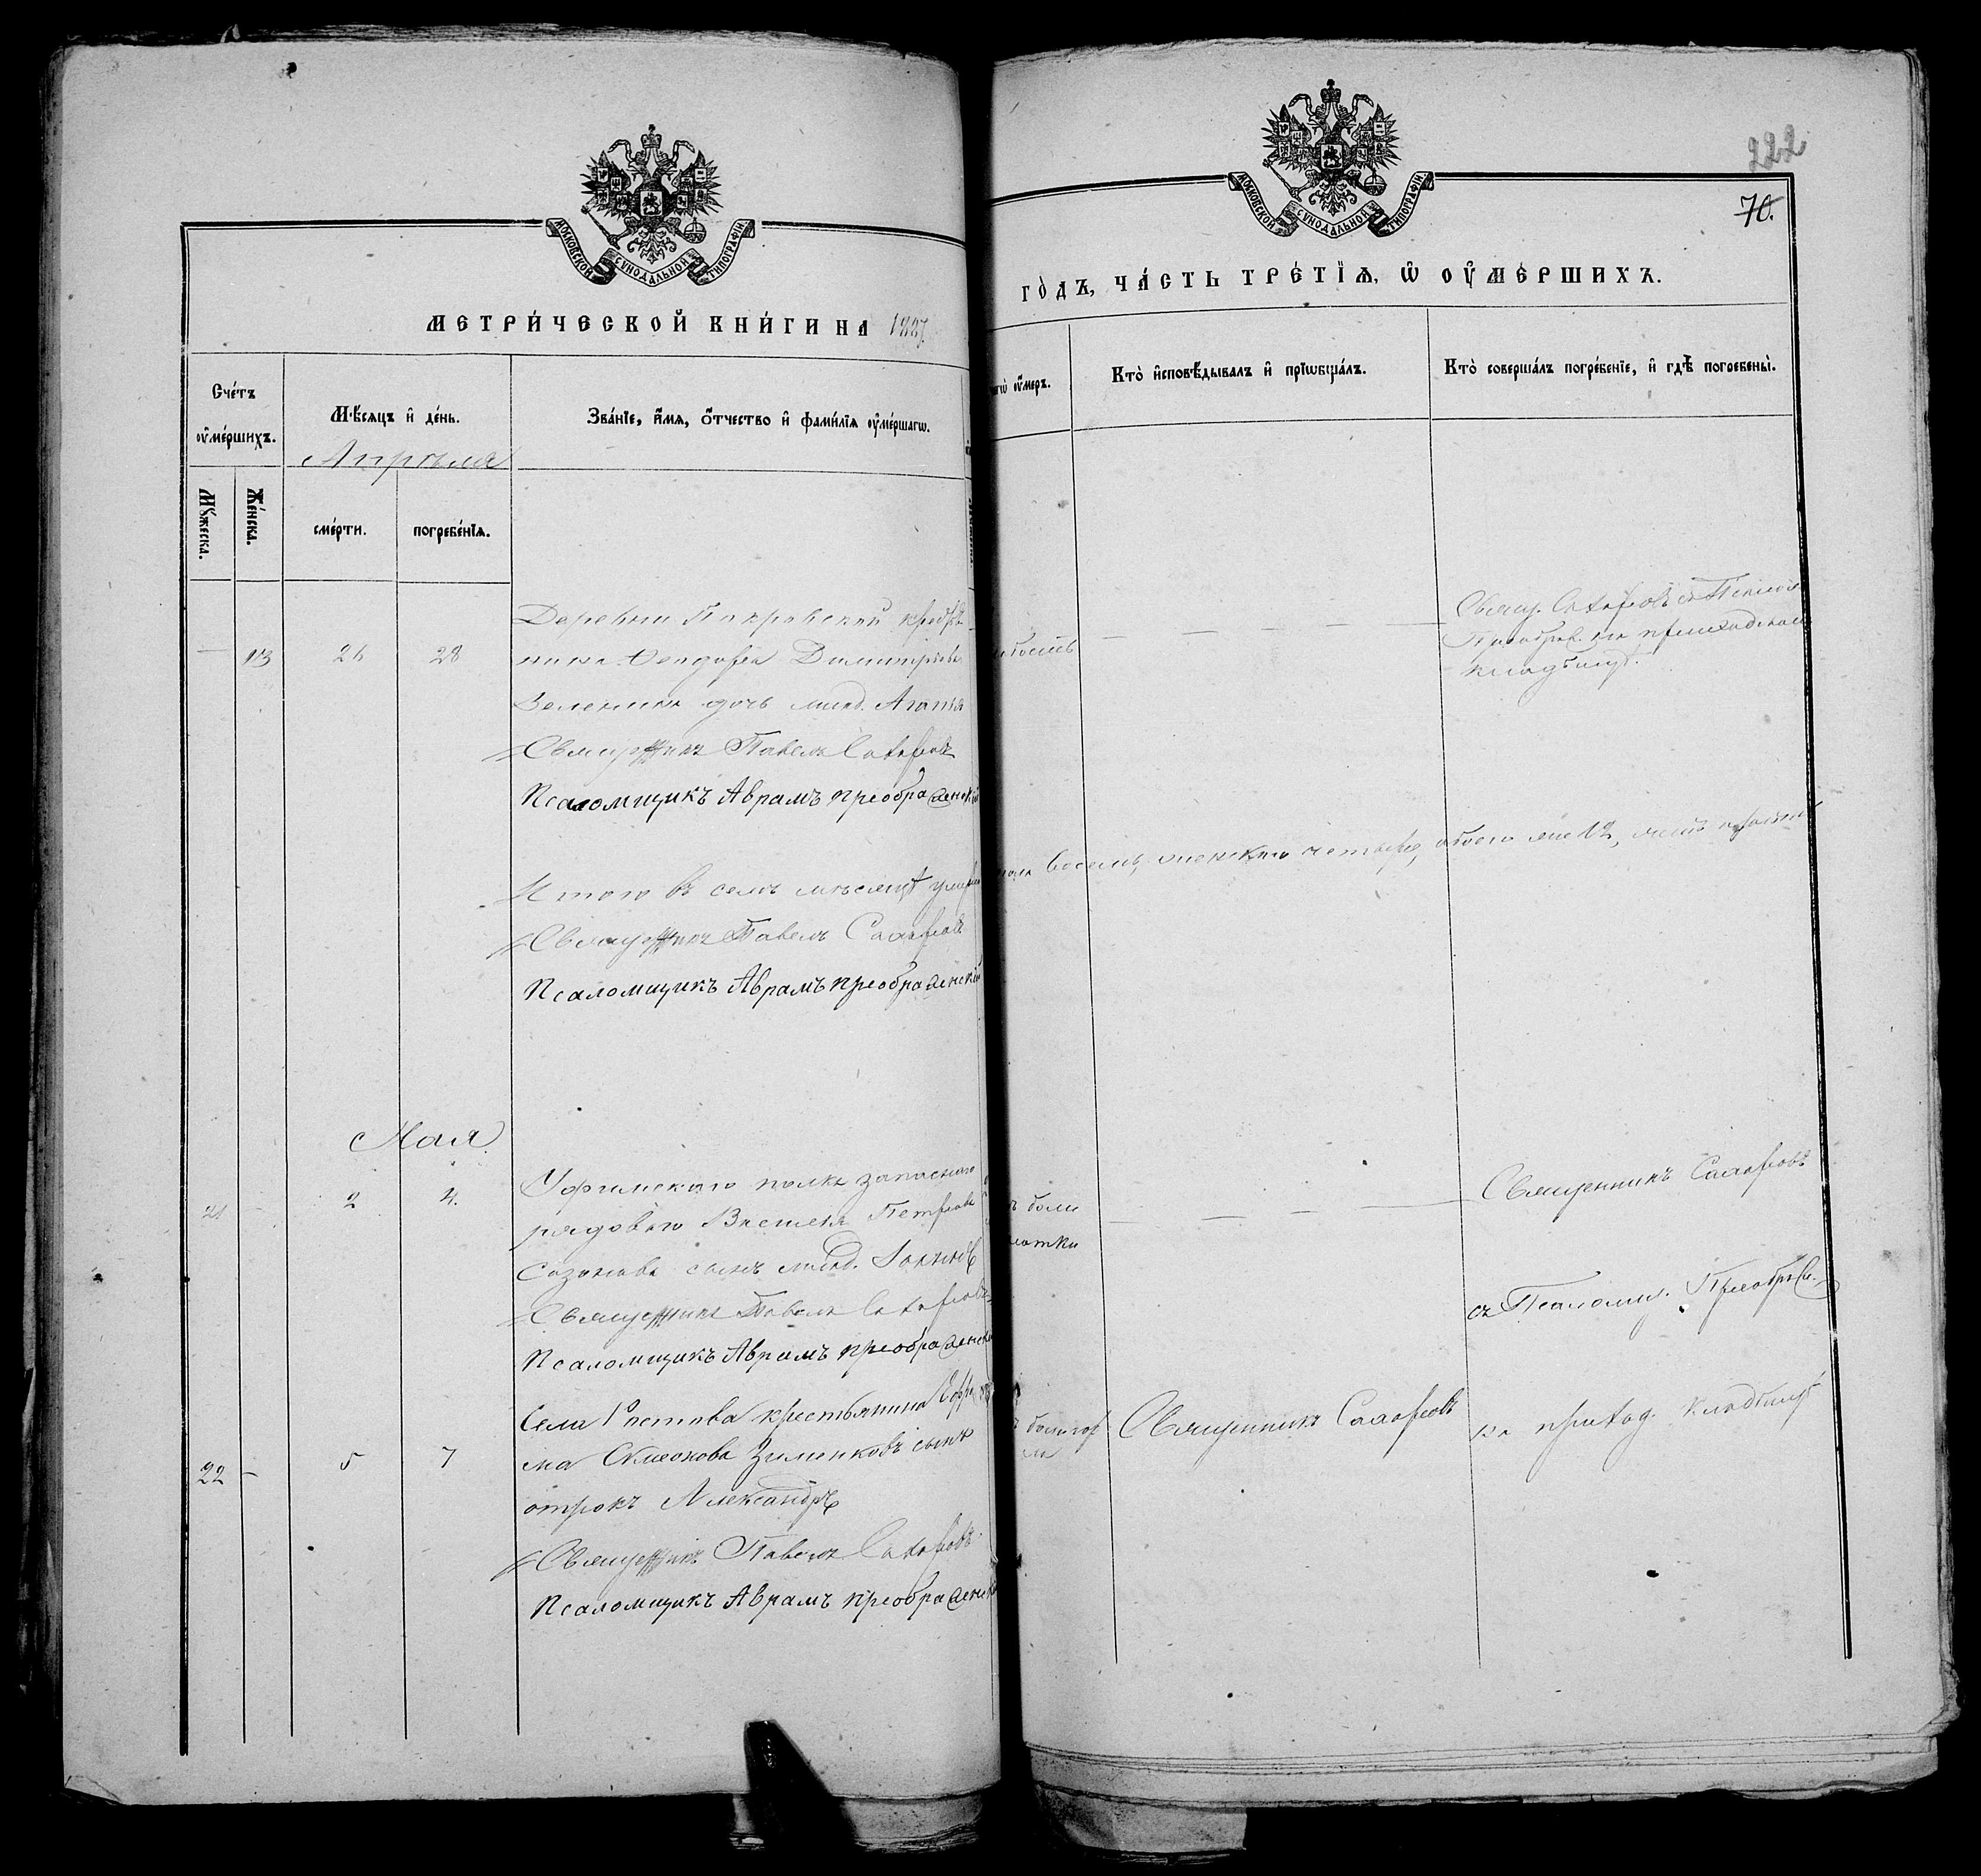 МОСКОВСКОЙ СѴНОДАЛЬНОЙ ТИПОГРАФІИ.
МЕТРИ́ЧЕСКОЙ КНИ́ГИ НА 1887
Сче́тъ ᲂу҆ме́ршихъ.
Мѣ́сяцъ и҆ де́нь.
Апрѣля
Зва́нїе, и҆́мя, ѻ҆́тчество и҆ фами́лїя ᲂу҆ме́ршагѡ.
Мꙋ́жеска.
Же́нска.
сме́рти.
погребе́нїѧ.
Деревни Покровской крестья
— 13 26 28
нина Ѳеодора Димитріева
Зеленина дочь млад. Агапія
Священникъ Павелъ Сахаровъ
Псаломщикъ Аврамъ преображенскій
Итого въ семъ мѣсяцѣ умерло
Священникъ Павелъ Сахаровъ
Псаломщикъ Аврамъ преображенскій
Мая
Уфимскаго полка запаснаго
21 - 2 4.
рядоваго Петрова
сынъ млад.
Священникъ Павелъ Сахаровъ
Псаломщикъ Аврамъ преображенскій
Села крестьянина
22 - 5 7
ма Симеонова сынъ
отрокъ Александръ
Священникъ Павелъ Сахаровъ
Псаломщикъ Аврамъ преображенскій
222
70.
МОСКОВСКОЙ СѴНОДАЛЬНОЙ ТИПОГРАФІИ.
ГО́ДЪ, ЧА́СТЬ ТРЕ́ТЇѦ, Ѡ҆ ОУ҆МЕ́РШИХЪ.
ᲂу҆́меръ.
Кто̀ и҆сповѣ́дывалъ и҆ прїѡбща́лъ.
Кто̀ соверша́лъ погребе́нїе, и҆ гдѣ̀ погребены̀.
Свящ. Сахаровъ съ Псалом.
Преображ. на приходскомъ
кладбищѣ.
пола восемь, женскаго четыре, обоего же 12,
Священникъ Сахаровъ
боли
отки
съ Псаломщ. Преображ.
Священникъ Сахаровъ
на приход. кладбищѣ